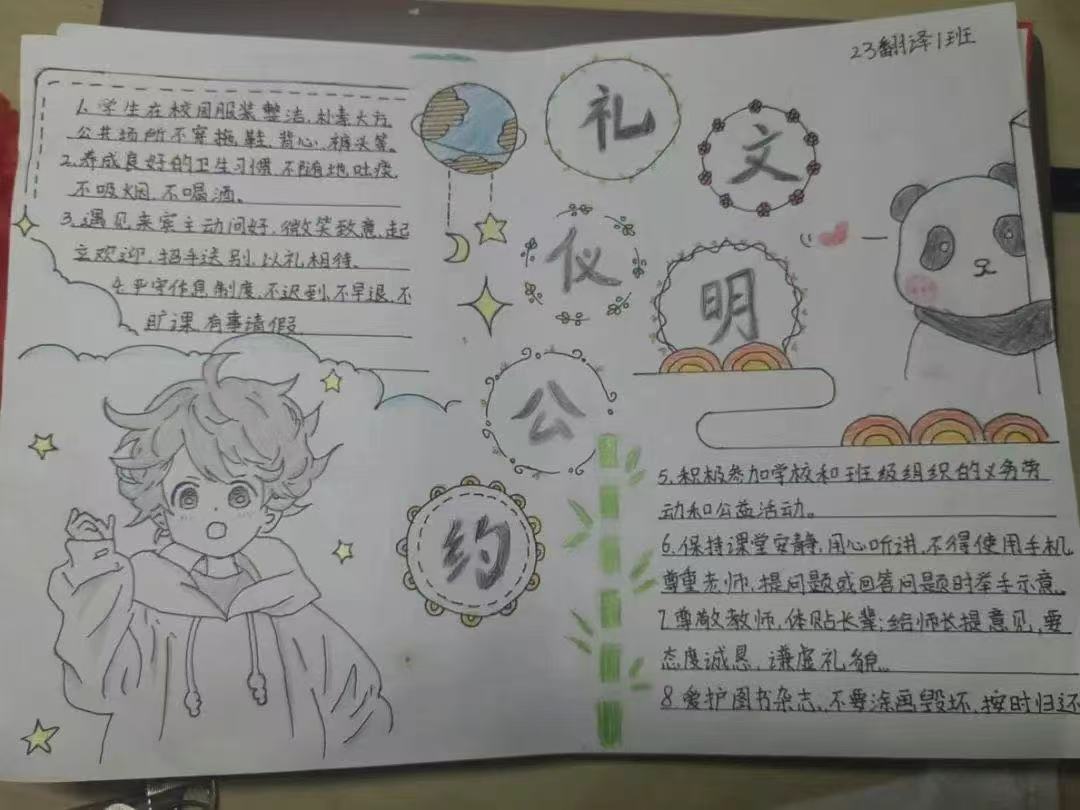 23翻译1班
文明
礼仪
公约
1.学生在校园服装整洁,朴素大方
公共场所不穿拖鞋,背心,裤头等。
2.养成良好的卫生习惯,不随地吐痰
不吸烟,不喝酒。
3.遇见来宾主动问好,微笑致意,起
立欢迎,招手送别,以礼相待。
4.严守作息制度,不迟到,不早退,不
旷课,有事请假
5.积极参加学校和班级组织的义务劳
动和公益活动。
6.保持课堂安静,用心听讲,不得使用手机
尊重老师,提问题或回答问题时举手示意。
7.尊敬教师,体贴长辈;给师长提意见,要
态度诚恳,谦虚礼貌。
8.爱护图书杂志,不要涂画毁坏,按时归还